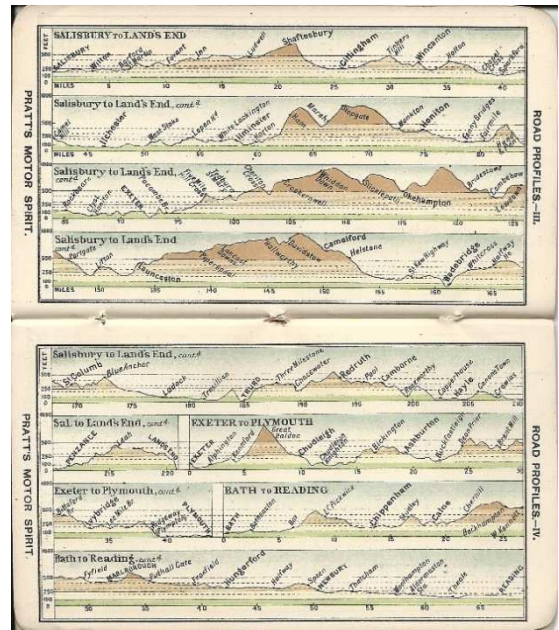 PRATT'S MOTOR SPIRIT.
ROAD PROFILES.-III.
FEET
SALISBURY TO LAND'S END
SALISBURY Wilton Fovant Ludwell Shaftesbury Gillingham Wincanton Holton Sparkford
MILES 5 10 15 20 25 30 35 40
Salisbury to Land's End, cont'd
Ilchester West Stoke Lopen White Lackington Ilminster Horton Ham Marsh Monkton Honiton Fenny Bridges
MILES 45 50 55 60 65 70 75 80
Salisbury to Land's End cont'd
Rockbeare EXETER Crockernwell Whiddon Down Sticklepath Okehampton Bridestowe Combebow Lewdown
85 90 95 100 105 110 115 120 125
Salisbury to Land's End
cont'd Portgate Lifton Launceston Hallworthy Davidstow Camelford Helstone St Kew Highway Wadebridge Whitecross
MILES 130 135 140 145 150 155 160 165
PRATT'S MOTOR SPIRIT.
ROAD PROFILES.-IV.
FEET
Salisbury to Land's End, cont'd
St Columb Blue Anchor Ladock Tresillian TRURO Three Milestone Chacewater Redruth Pool Camborne Roseworthy Copperhouse Hayle Canons Town Crowlas
170 175 180 185 190 195 200 205 210
Sal. to Land's End, cont'd
PENZANCE LANDS END
215 220
EXETER TO PLYMOUTH
EXETER Kennford Great Haldon Chudleigh Bickington Ashburton Buckfastleigh Dean Prior Brent Mill
0 5 10 15 20 25 30
Exeter to Plymouth, cont'd
Ivybridge Lee Mill Br Ridgeway Plympton PLYMOUTH
35 40
BATH TO READING
BATH Batheaston Box Pickwick Chippenham Studley Calne Cherhill Beckhampton W. Kennett
0 5 10 15 20 25
Bath to Reading, cont'd
Fyfield MARLBOROUGH Puthall Gate Froxfield Hungerford Halfway Speen NEWBURY Thatcham Woolhampton Aldermaston Theale READING
30 35 40 45 50 55 60 65